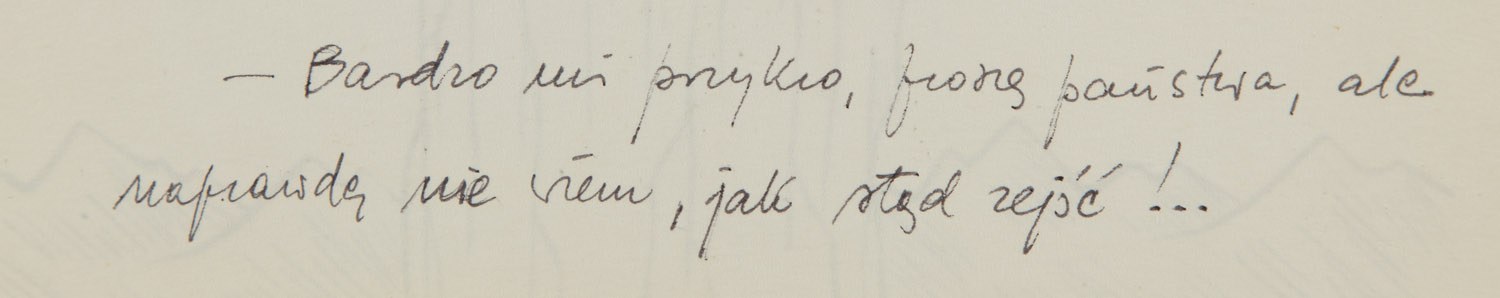 — Bardzo mi przykro, proszę państwa, ale
naprawdę nie wiem, jak stąd zejść!...